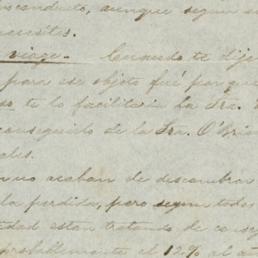 conducto, aunque segun
necesites.
viage. Cuando te dije
para ese objeto fué porque
te lo facilitaria la Sra.
conseguido de la Sra. O'Brien
ales.
no acaban de descombrar
la perdida, pero segun todos
edad estan tratando de conseg
probablemente el 12% al añ